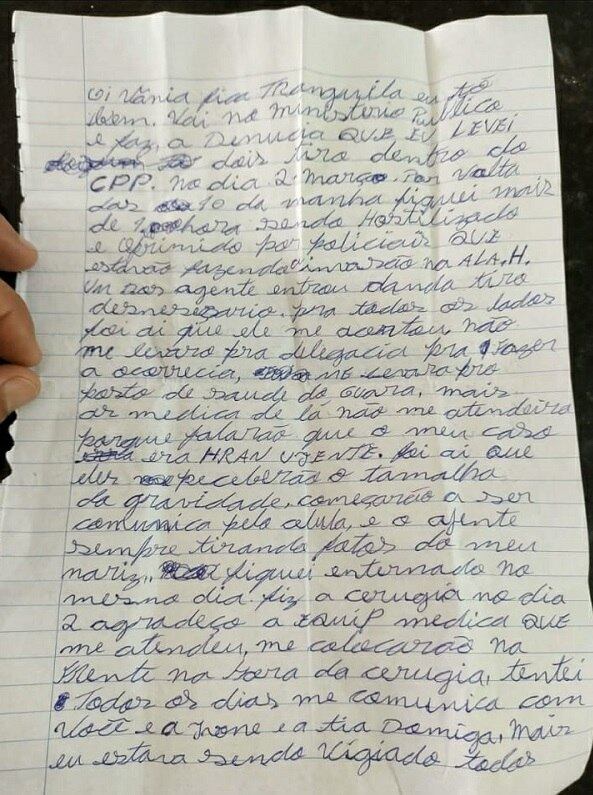 Oi Vânia fica Tranquila eu tô
bem. Vai no Ministerio Publico
e faz, a Denucia QUE EU LEVEI
dois tiro dentro do
CPP. no dia 2 Março. Por volta
das 10 da manha fiquei mais
de 1 hora sendo Hostilizado
e Oprimido por policiais QUE
estavão fazenda invasão na ALA.H.
um dos agente entrou danda tiro
desnesesario. pra todos os lados
foi ai que ele me acertou, não
me levaro pra delegacia pra fazer
a ocorrecia, ME Levara pro
posto de saude do Guara, mais
as medica de lá não me atendeira
porque falarão que o meu caso
era HRAN UJENTE. foi ai que
eles peceberão o tamalha
da gravidade, começarão a ser
comunica pelo celula, e o ajente
sempre tiranda fotos do meu
nariz, fiquei enternado no
mesmo dia fiz a cerugia no dia
2 agradeço a EQUIP medica QUE
me atendeu, me colocarão na
frente na Hora da cerugia, tentei
Todos os dias me comunica com
Você e a Ivone e a tia Domiga, Mais
eu estava sendo Vigiado todos